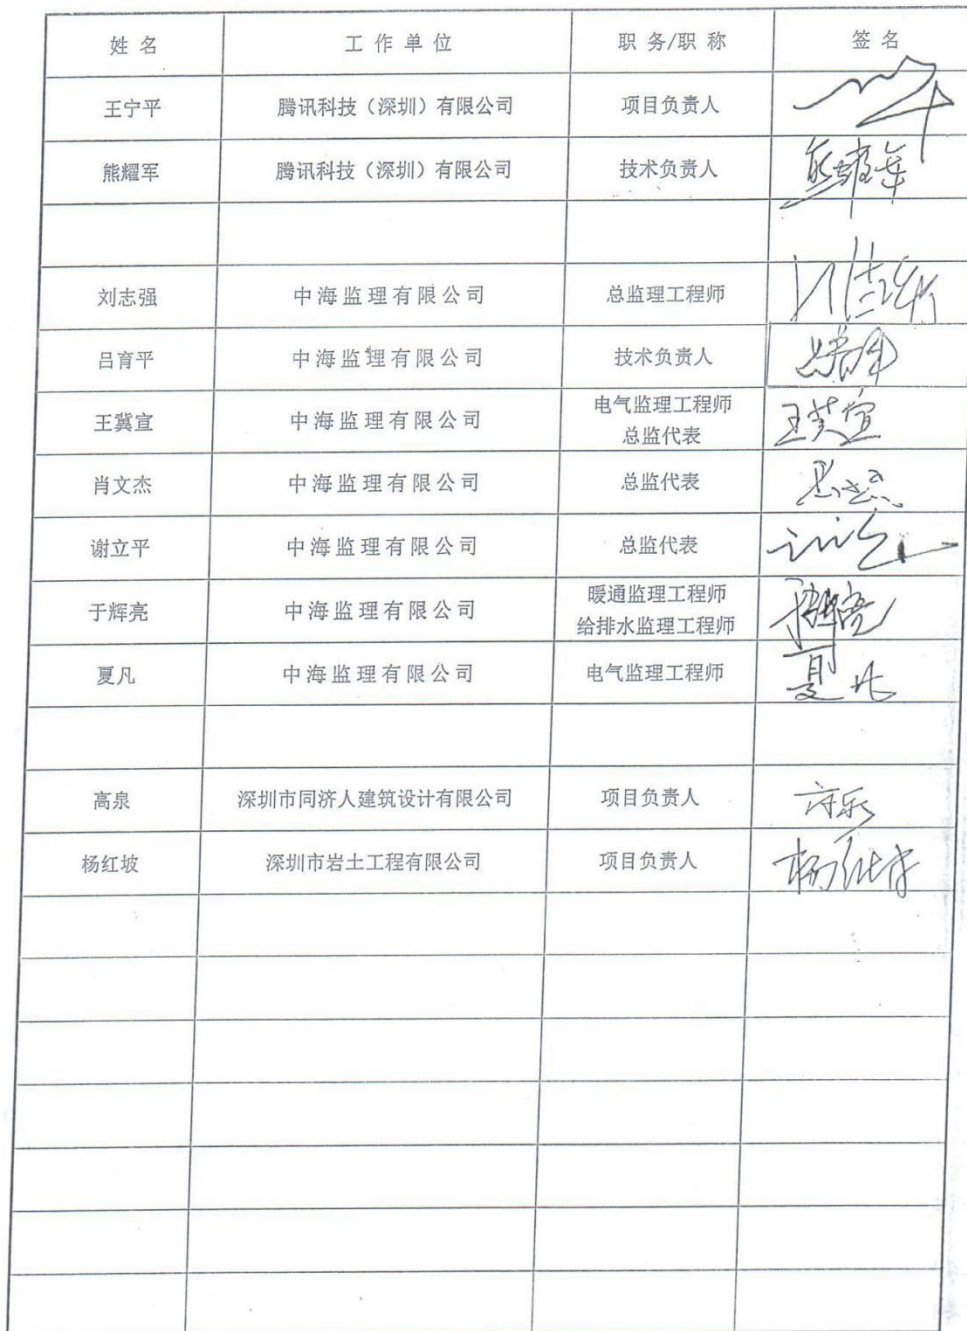 姓 名 工 作 单 位 职 务/职 称 签 名
王宁平 腾讯科技（深圳）有限公司 项目负责人
熊耀军 腾讯科技（深圳）有限公司 技术负责人 熊耀军
刘志强 中海监理有限公司 总监理工程师 刘志强
吕育平 中海监理有限公司 技术负责人
王冀宣 中海监理有限公司 电气监理工程师
总监代表 王冀宣
肖文杰 中海监理有限公司 总监代表
谢立平 中海监理有限公司 总监代表
于辉亮 中海监理有限公司 暖通监理工程师
给排水监理工程师 于辉亮
夏凡 中海监理有限公司 电气监理工程师 夏凡
高泉 深圳市同济人建筑设计有限公司 项目负责人
杨红坡 深圳市岩土工程有限公司 项目负责人 杨红坡